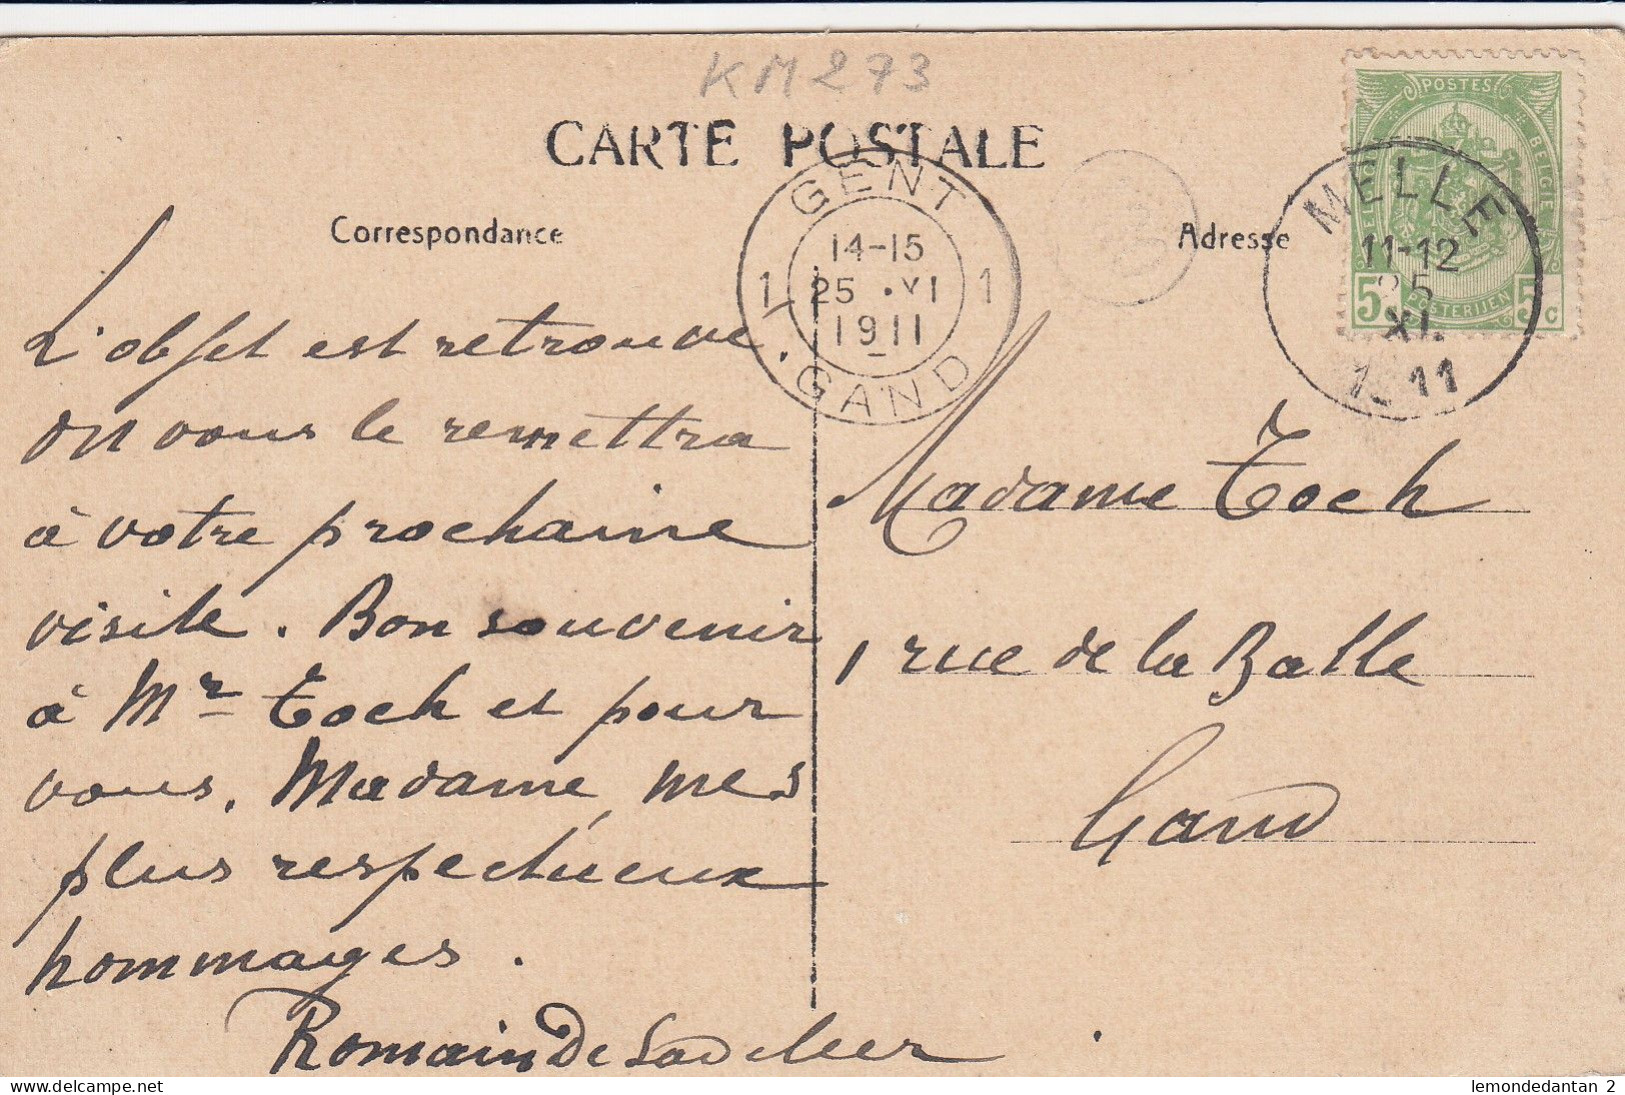 KM273
CARTE POSTALE
Correspondance
Adresse
POSTES
BELGIQUE BELGIE
POSTERIJEN
5c 5c
MELLE
11-12
25
XI.
1911
GENT
14-15
1 25 .XI 1
1911
GAND
L'objet est retrouvé.
on vous le remettra
à votre prochaine
visite. Bon souvenir
à Mr Toch et pour
vous, Madame, mes
plus respectueux
hommages.
Romain De
Madame Toch
1 rue de la Balle
Gand
lemondedantan 2